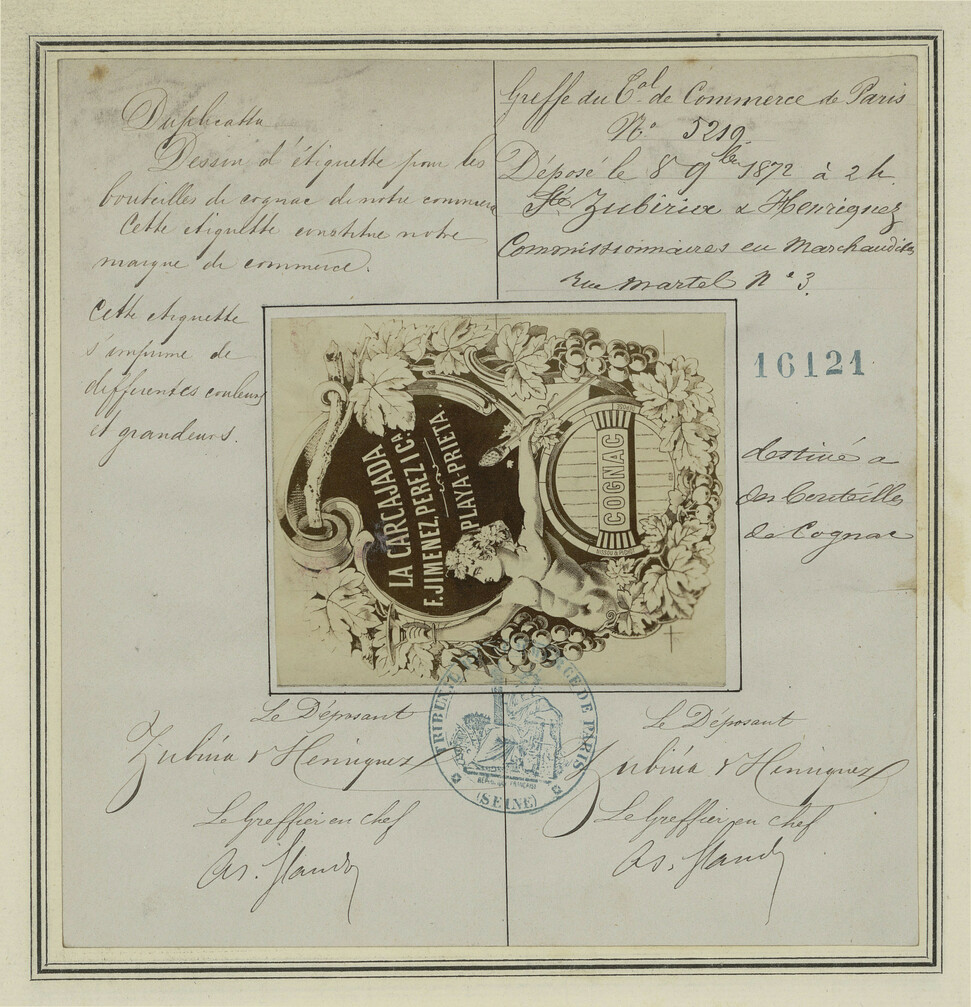 Duplicatta
Dessin d'étiquette pour les
bouteilles de cognac de notre commerce
Cette étiquette constitue notre
marque de commerce.
Cette étiquette
s'imprime de
differentes couleurs
et grandeurs.
Greffe du Cal de Commerce de Paris
No. 5219
Déposé le 8 9bre 1872 à 2 h.
Sté Zubiria & Henriquez
Commissionnaires en Marchandises
rue Martel No 3
16121
destiné a
des bouteilles
de Cognac
LA CARCAJADA
F. JIMENEZ, PEREZ I CA.
PLAYA-PRIETA.
COGNAC
TRIBUNAL DE COMMERCE DE PARIS
RÉPUBLIQUE FRANÇAISE
(SEINE)
Le Déposant
Zubiria & Henriquez
Le Greffier en chef
Le Déposant
Zubiria & Henriquez
Le Greffier en chef